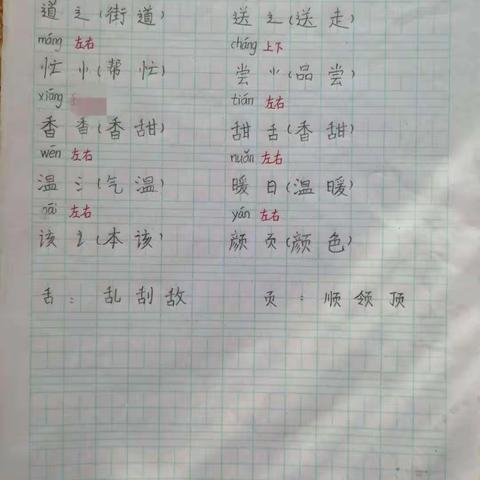 道 辶(街道) 送 辶(送走)
máng 左右 cháng 上下
忙 忄(帮忙) 尝 ⺌(品尝)
xiāng tián 左右
香 香(香甜) 甜 舌(香甜)
wēn 左右 nuǎn 左右
温 氵(气温) 暖 日(温暖)
gāi 左右 yán 左右
该 讠(本该) 颜 页(颜色)
舌: 乱 刮 敌 页: 顺 领 顶